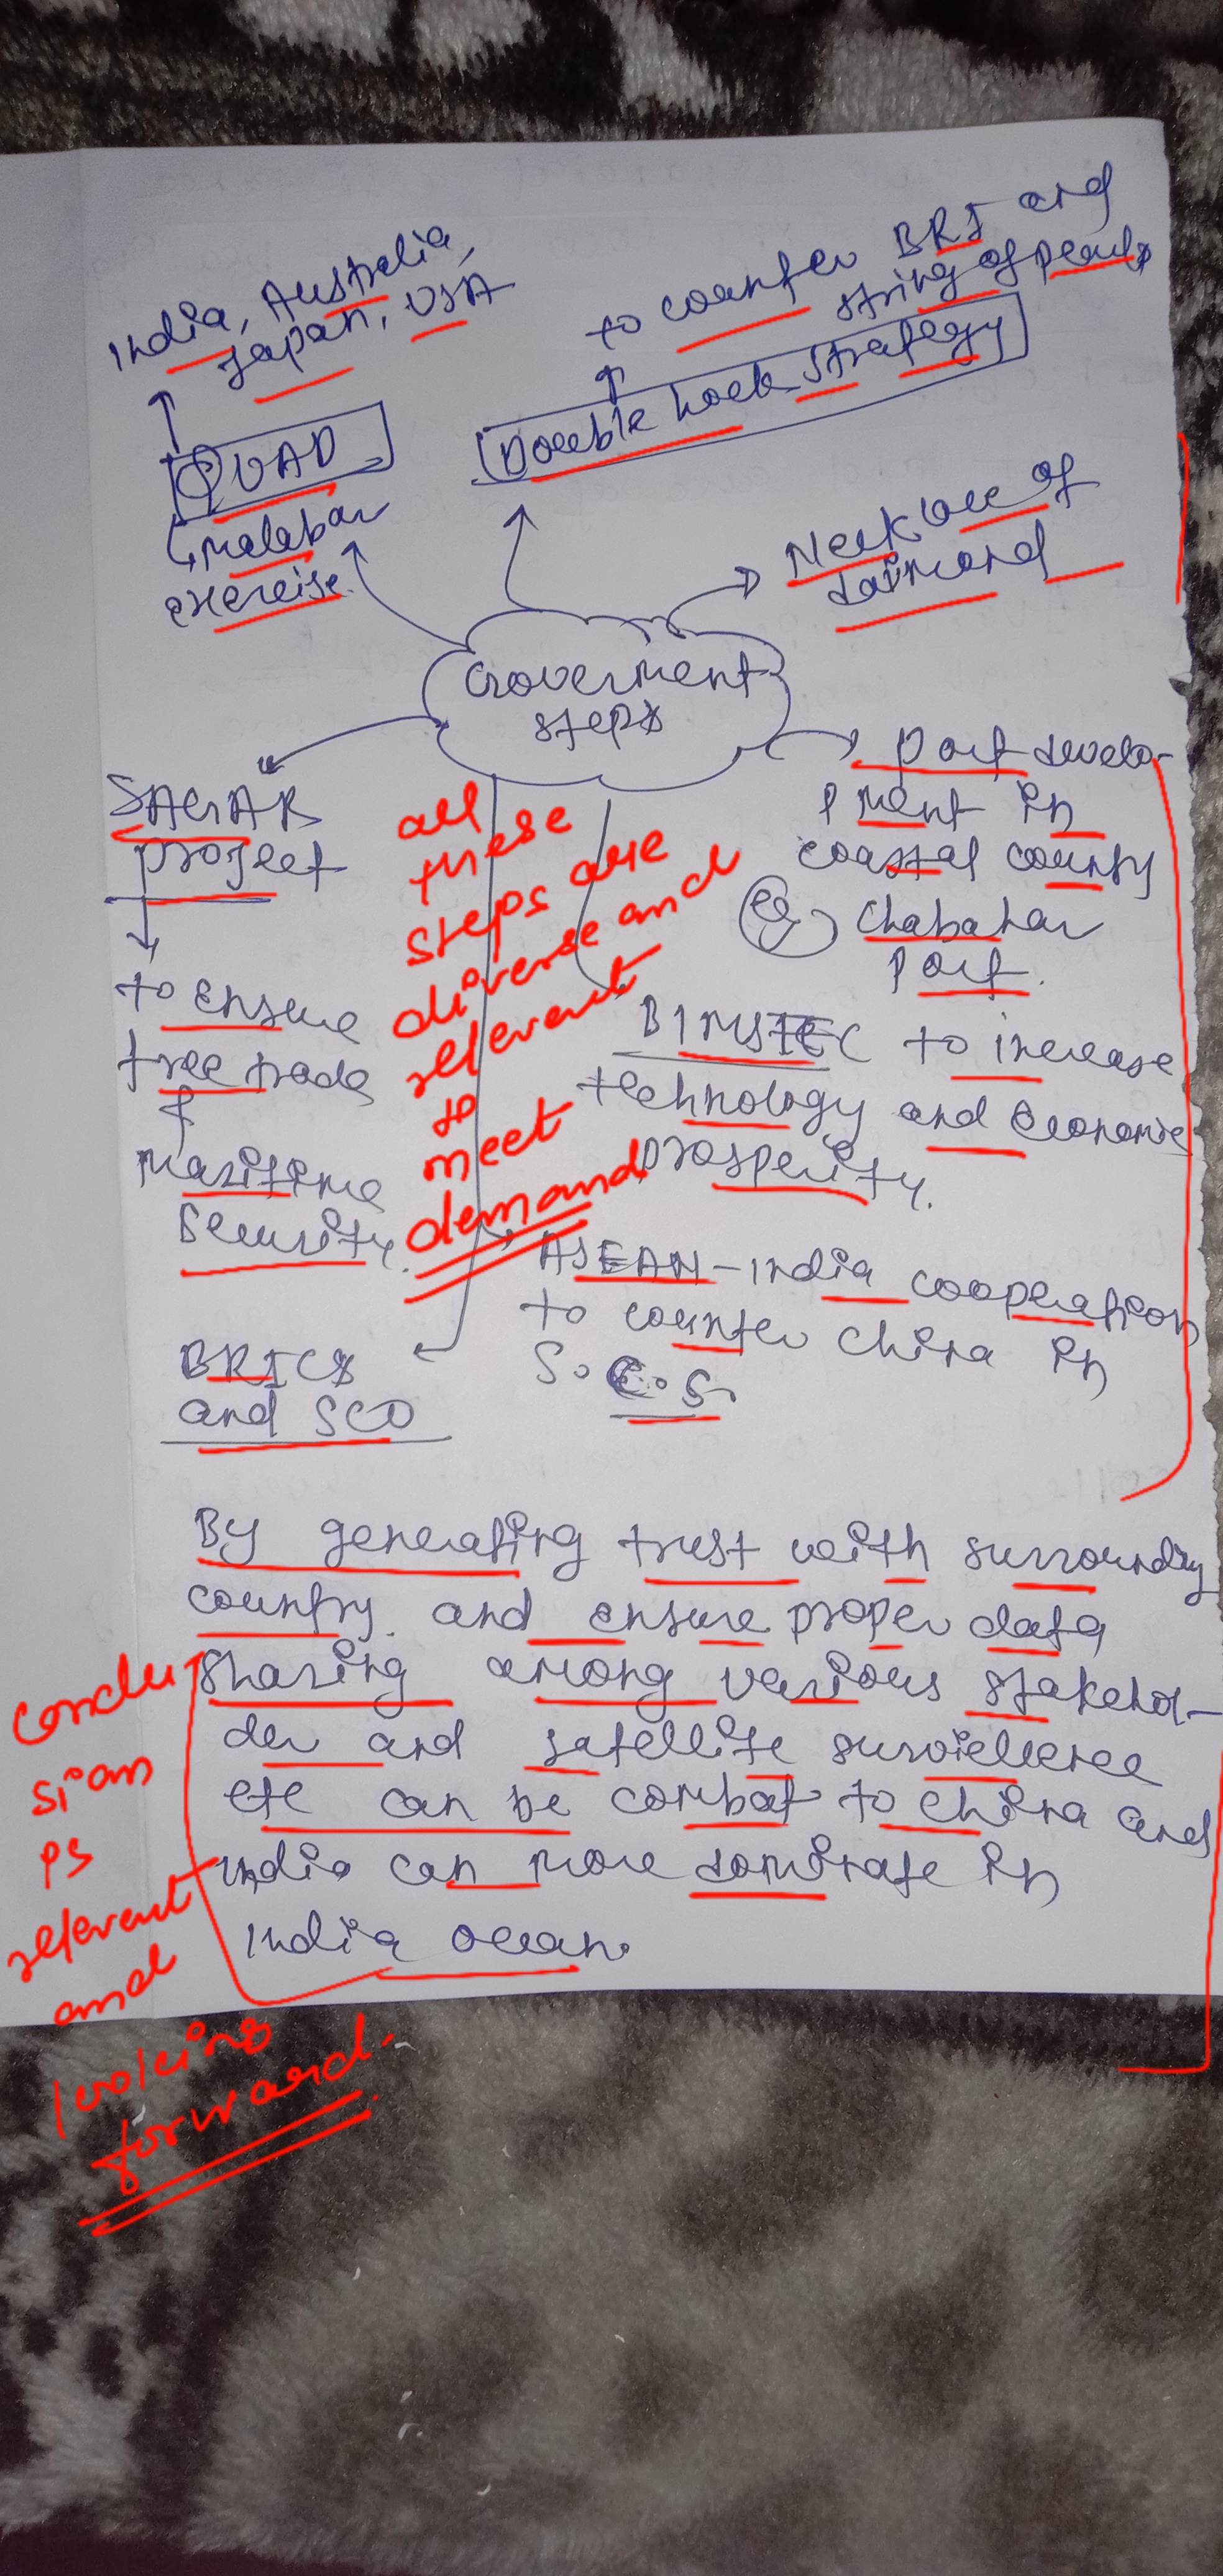 India, Australia,
Japan, USA
to counter BRI and
string of pearls
QUAD
Malabar
exercise
Double hook strategy
Necklace of
daimond
Goverment
steps
SAGAR
project
to ensure
free trade
&
Maritime
Security.
Port develo-
pment in
coastal county
eg Chabahar
Port.
BIMSTEC to increase
technology and Economic
prosperity.
ASEAN-India cooperation
to counter China in
S.C.S.
BRICS
and SCO
all
these
steps are
diverse and
relevent
to
meet
demand
By generating trust with surrounding
country. and ensure proper data
sharing among various stakehol-
der and satellite surviellence
etc can be combat to China and
India can more dominate in
India ocean.
conclu
sion
is
relevent
and
looking
forward.